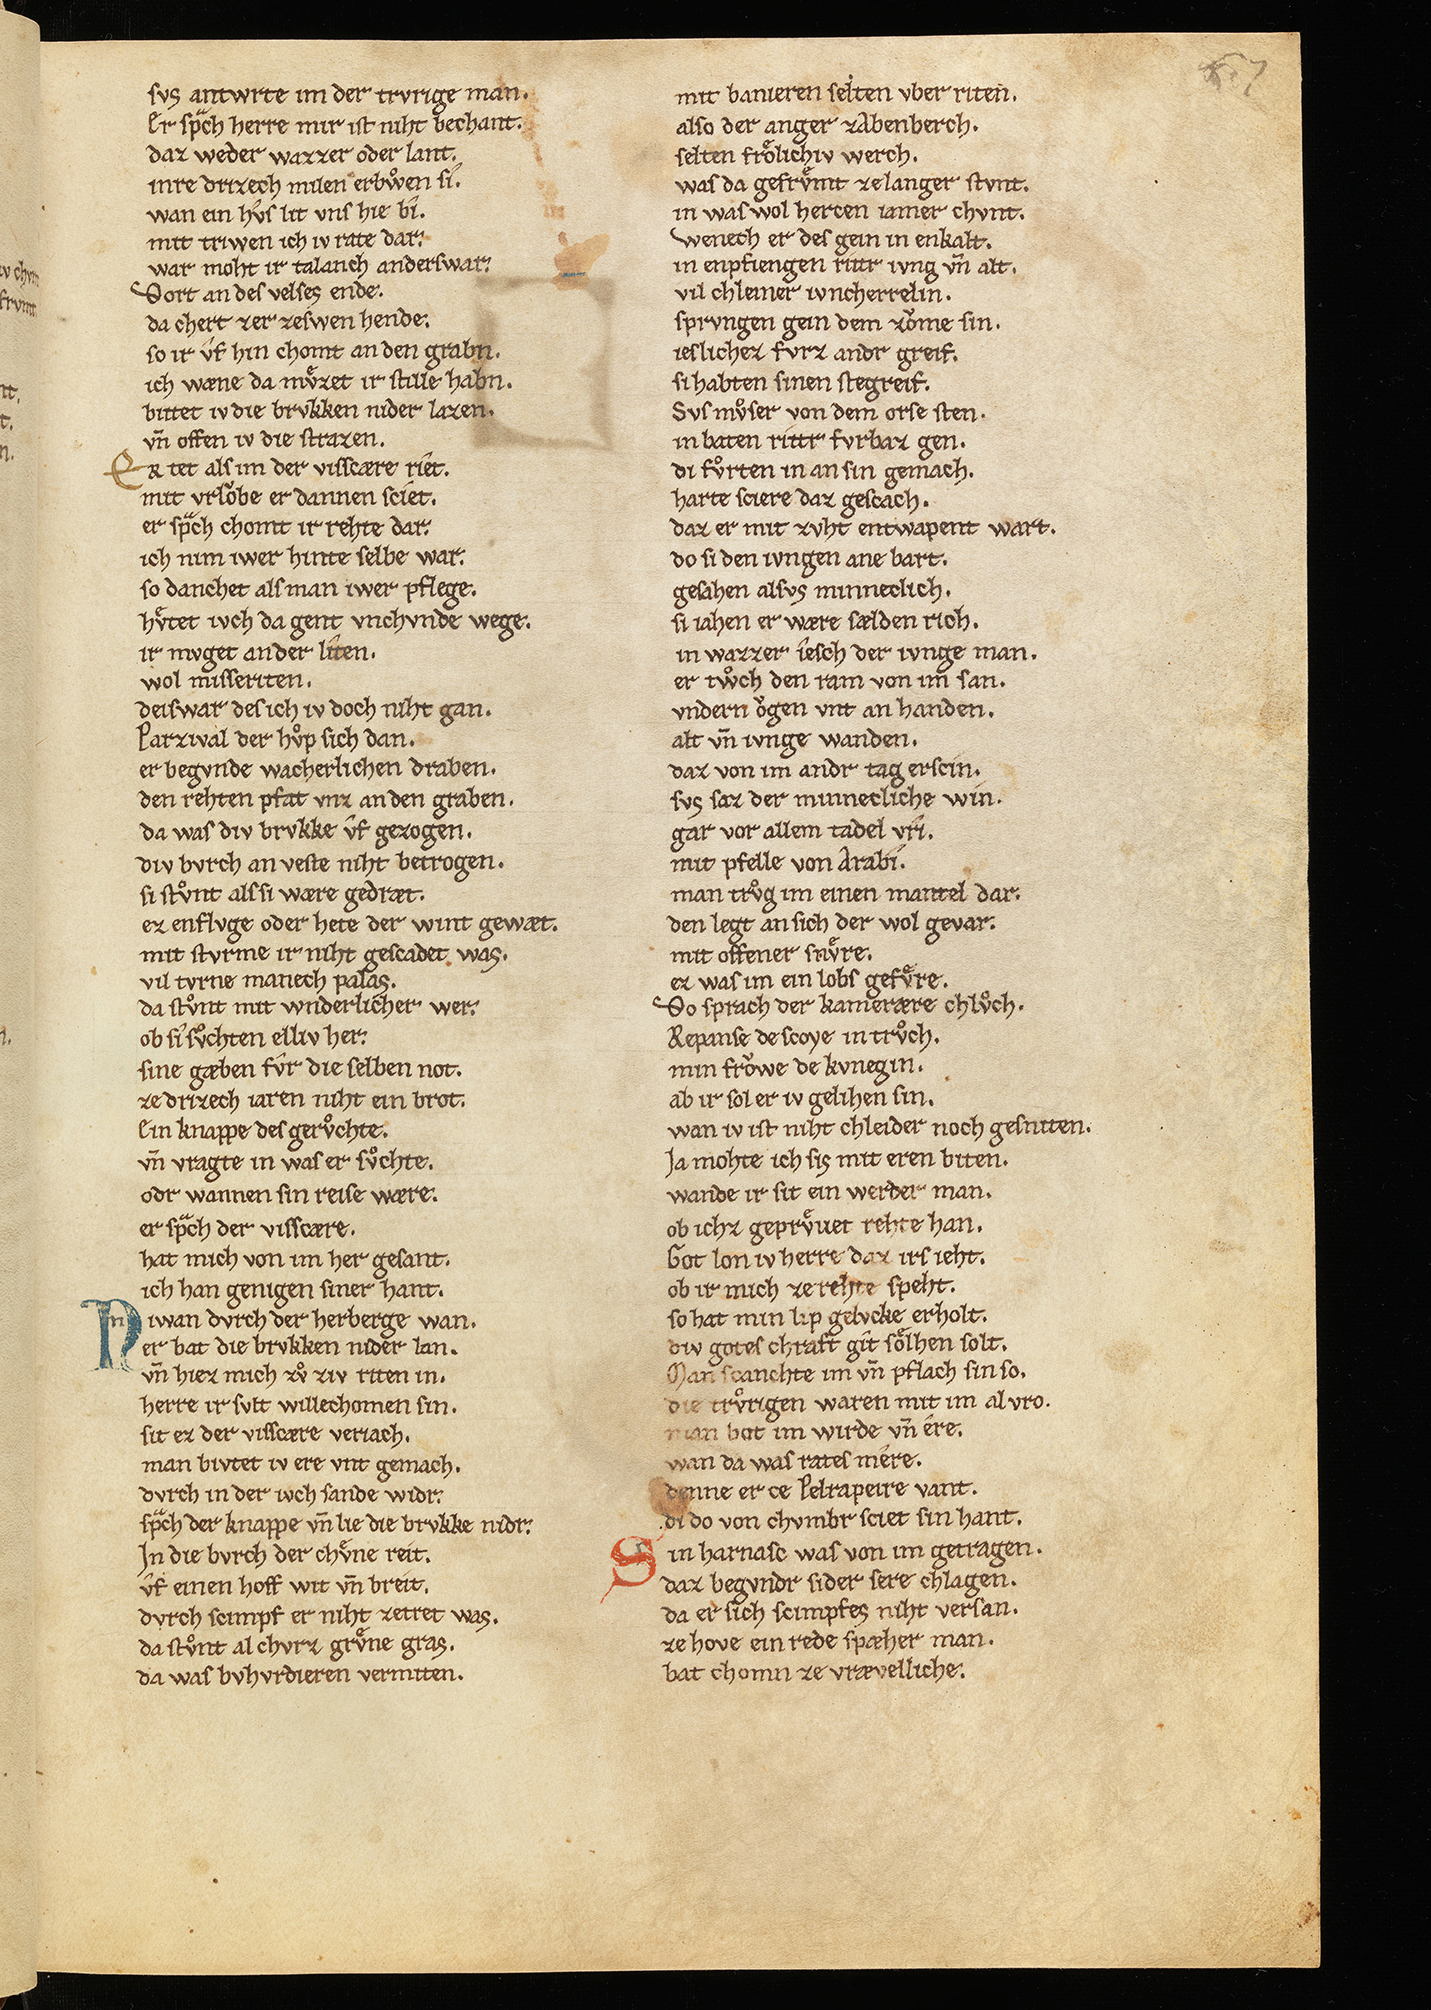 svs antwrte im der trvrige man.
Er sp̄ͣch herre mir ist niht bechant.
daz weder wazzer oder lant.
inre drizech milen erbv̊wen si.
wan ein hvs lit vns hie bi.
mit triwen ich iv rate dar.
war moht ir talanch anderswar.
Dort an des velses ende.
da chert zer zeswen hende.
so ir v̂f hin chomt an den grabn.
ich wæne da mv̊zet ir stille habn.
bittet iv die brvkken nider lazen.
vn̄ offen iv die strazen.
ER tet als im der visscære riet.
mit vrlǒbe er dannen sciet.
er spͣch chomt ir rehte dar.
ich nim iwer hinte selbe war.
so danchet als man iwer pflege.
hv̊tet ivch da gent vnchvnde wege.
ir mvget an der liten.
wol misseriten.
deiswar des ich iv doch niht gan.
Parzival der hv̊p sich dan.
er begvnde wacherlichen draben.
den rehten pfat vnz an den graben.
da was div brvkke v̂f gezogen.
div bvrch an veste niht betrogen.
si stv̊nt als si wære gedræt.
ez enflvge oder hete der wint gewæt.
mit stvrme ir niht gescadet was.
vil tvrne manech palas.
da stv̊nt mit wnderlicher wer.
ob si sv̊chten elliv her.
sine gæben fv̂r die selben not.
ze drizech iaren niht ein brot.
Ein knappe des gerv̊chte.
vn̄ vragte in was er sv̊chte.
odr wannen sin reise wære.
er spͣch der visscære.
hat mich von im her gesant.
ich han genigen siner hant.
Niwan dvrch der herberge wan.
er bat die brvkken nider lan.
vn̄ hiez mich zv̊ ziv riten in.
herre ir svlt willechomen sin.
sit ez der visscære veriach.
man bivtet iv ere vnt gemach.
dvrch in der ivch sande widr.
spͣch der knappe vn̄ lie die brvkke nidr.
In die bvrch der chv̊ne reit.
v̂f einen hoff wit vn̄ breit.
dvrch scimpf er niht zetret was.
da stv̊nt al chvrz grv̊ne gras.
da was bvhvrdieren vermiten.
mit banieren selten vber riten.
also der anger zAbenberch.
selten frőlichiv werch.
was da gefrv̊mt ze langer stvnt.
in was wol hercen iamer chvnt.
wenech er des gein in enkalt.
in enpfiengen rittr ivng vn̄ alt.
vil chleiner ivncherrelin.
sprvngen gein dem zǒme sin.
ieslichez fvrz andr greif.
si habten sinen stegreif.
Svs mv̊ser von dem orse sten.
in baten rittr fvrbaz gen.
di fv̊rten in an sin gemach.
harte sciere daz gescach.
daz er mit zvht entwapent wart.
do si den ivngen ane bart.
gesahen alsvs minneclich.
si iahen er wære sælden rich.
in wazzer iesch der ivnge man.
er twv̊ch den ram von im san.
vndern ǒgen vnt an handen.
alt vn̄ ivnge wanden.
daz von im andr tag erscin.
svs saz der minnecliche win.
gar vor allem tadel vri.
mit pfelle von Arabi.
man trv̊g im einen mantel dar.
den legt an sich der wol gevar.
mit offener snv̊re.
ez was im ein lobs gefv̊re.
Do sprach der kamerære chlv̊ch.
Repanse de scoye in trv̊ch.
min frǒwe de kvnegin.
ab ir sol er iv gelihen sin.
wan iv ist niht chleider noch gesniten.
Ja mohte ich sis mit eren biten.
wande ir sit ein werder man.
ob ichz geprv̊uet rehte han.
Got lon iv herre daz irs ieht.
ob ir mich ze rehte speht.
so hat min lip gelvcke erholt.
div gotes chraft git sőlhen solt.
Man scanchte im vn̄ pflach sin so.
die trv̊rigen waren mit im al vro.
man bot im wirde vn̄ ere.
wan da was rates mere.
denne er ce Pelrapeire vant.
di do von chvmbr sciet sin hant.
Sin harnasc was von im getragen.
daz begvndr sider sere chlagen.
da er sich scimpfes niht versan.
ze hove ein rede spæher man.
bat chomn ze vrævelliche.